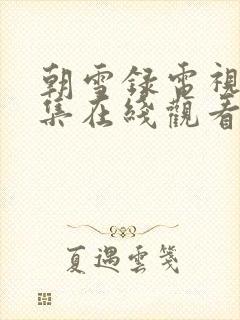 朝雪錄電視
集在綫觀看
夏遇雲箋